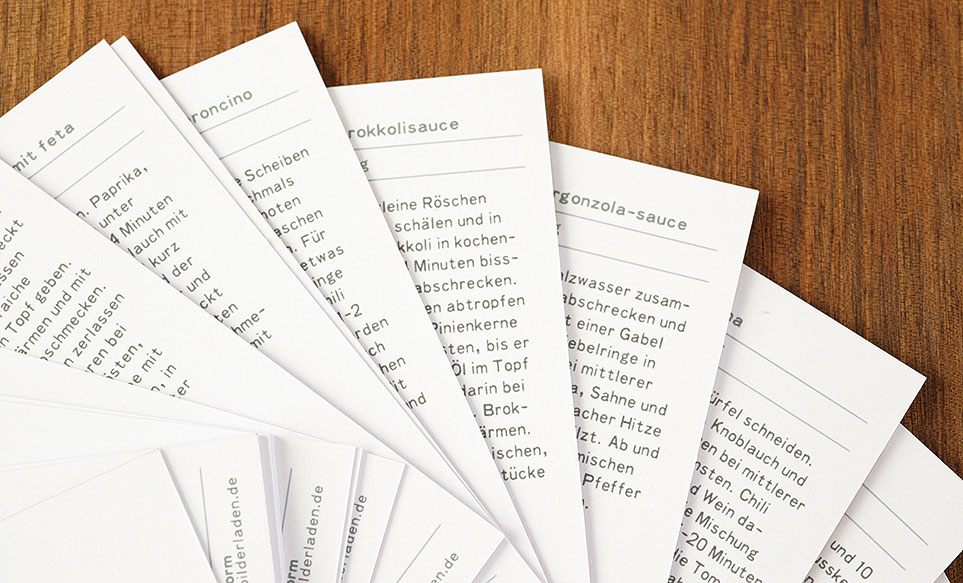 eckt
ssen
aiche
Topf geben.
ärmen und mit
schmecken.
n zerlassen
ren bei
osten,
e mit
, in
er
mit feta
n. Paprika,
unter
4 Minuten
lauch mit
kurz
d der
und
ckt
hme-
mit
roncino
e Scheiben
chmals
hoten
aschen
n. Für
etwas
inge
hili
1-2
rden
ch
hen
it
nd
rokkolisauce
g
leine Röschen
schälen und in
kkoli in kochen-
l Minuten biss-
abschrecken.
en abtropfen
Pinienkerne
sten, bis er
Öl im Topf
darin bei
. Brok-
ärmen.
ischen,
tücke
rgonzola-sauce
g
alzwasser zusam-
abschrecken und
t einer Gabel
iebelringe in
ei mittlerer
a, Sahne und
acher Hitze
lzt. Ab und
mischen
Pfeffer
n.
na
ürfel schneiden.
Knoblauch und
en bei mittlerer
nsten. Chili
d Wein da-
ie Mischung
-20 Minuten
die Tom
und 10
usska
orm
bilderladen.de
orm
ilderladen.de
erladen.de
erladen.de